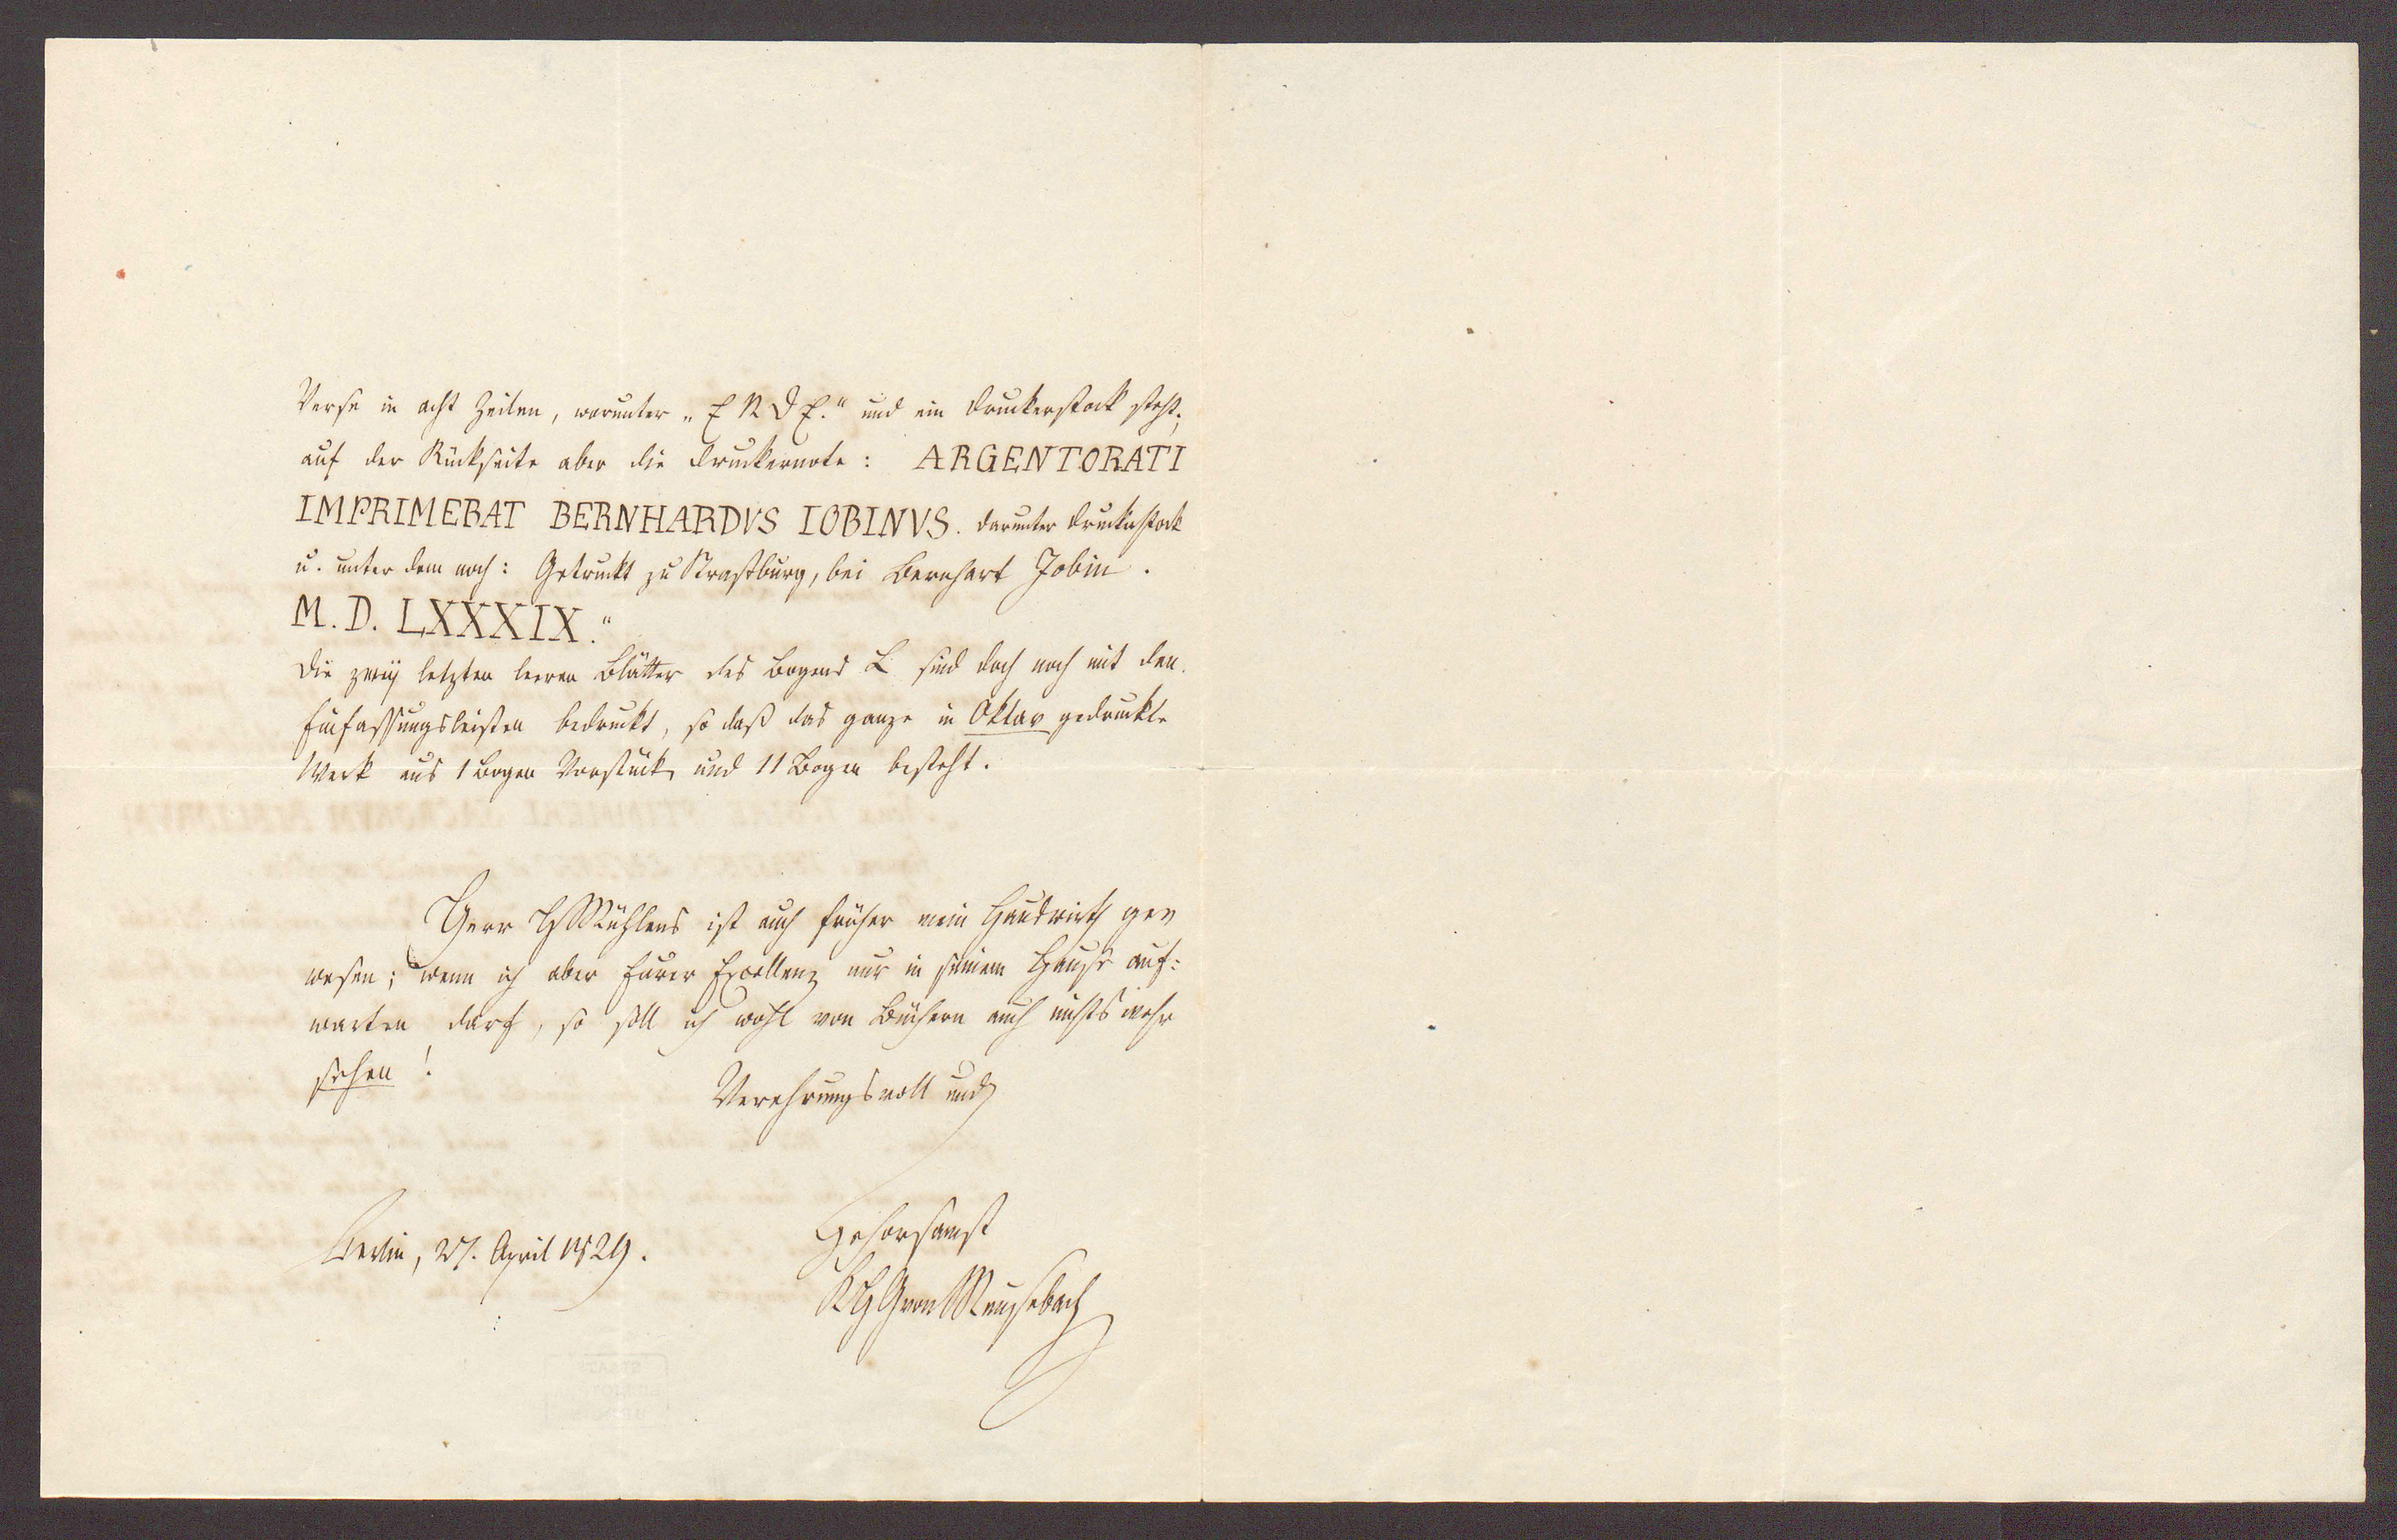 Verse in acht Zeilen, worunter „ENDE.“ und ein Druckerstock steht;
auf der Rückseite aber die Druckernote: ARGENTORATI
IMPRIMEBAT BERNHARDVS IOBINVS. darunter Druckerstock
u. unter dem noch: Getruckt zu Straßburg, bei Bernhart Jobin.
M.D. LXXXIX.“
Die zwey letzten leeren Blätter des Bogens L sind doch noch mit den
Einfassungsleisten bedruckt, so daß das ganze in Oktav gedruckte
Werk aus 1 Bogen Vorstück und 11 Bogen besteht.
Herr Mühlens ist auch früher mein Hauswirth ge
wesen; wenn ich aber Eurer Excellenz nur in seinem Hause auf:
warten darf, so soll ich wohl von Büchern auch nichts mehr
sehen!
Verehrungsvoll und
Gehorsamst
Berlin, 27. April 1829.
KHGvonMeusebach